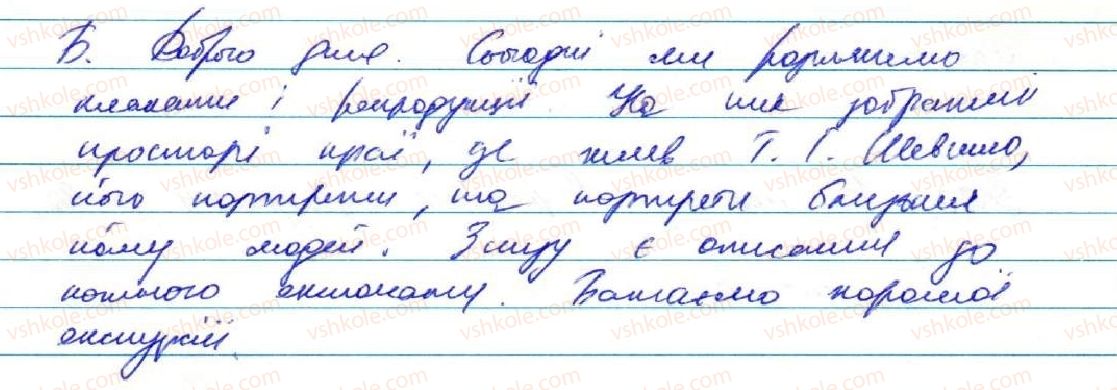 Б. Доброго дня. Сьогодні ми розглянемо
плакати і репродукції. На них зображені
простори краї, де жив Т. Г. Шевченко,
його портрети, та портрети близьких
йому людей. Знизу є описання до
кожного експонату. Бажаємо хорошої
екскурсії.